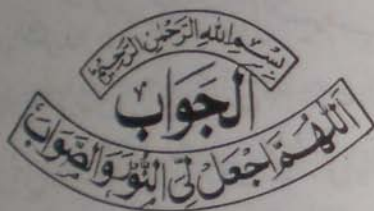 بِسْمِ اللهِ الرَّحْمٰنِ الرَّحِيْمِ
اَلْجَوَاب
اَللّٰهُمَّ اجْعَلْ لِّي النُّوْرَ وَالصَّوَابَ